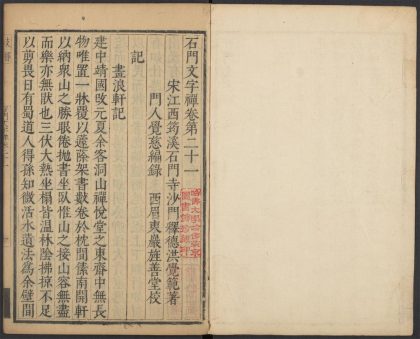 石門文字禪卷第二十一
宋江西筠溪石門寺沙門釋德洪覺範著
門人覺慈編錄 西眉東巖旌善堂校
記
畫浪軒記
建中靖國改元夏余客洞山禪悅堂之東齋中無長
物唯置一牀覆以蓬蒢架書數卷於枕間傃南開軒
以納衆山之勝眼倦拋書坐臥惟山之接山容無盡
而樂亦無猒也三伏大熱坐榻皆溫林陰拂掠不足
以剪畏日有蜀道人得孫知微活水遺法為余壁間